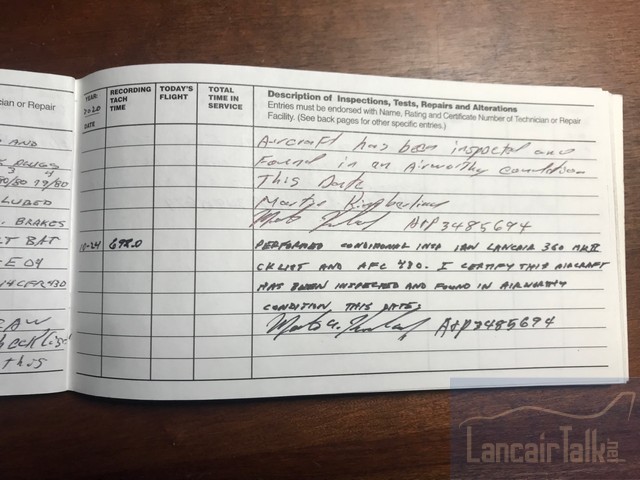 ian or Repair
AND
PLUGS
3 4
80/80 79/80
LUDED
. BRAKES
LT BAT
E 04
14CFR430
EAW
hecklist
this
YEAR:
2020
DATE
RECORDING
TACH
TIME
TODAY'S
FLIGHT
TOTAL
TIME IN
SERVICE
Description of Inspections, Tests, Repairs and Alterations
Entries must be endorsed with Name, Rating and Certificate Number of Technician or Repair
Facility. (See back pages for other specific entries.)
Aircraft has been inspected and
Found in an Airworthy condition
This Date
A+P 3485694
10-24 698.0 PERFORMED CONDITIONAL INSP IAW LANCAIR 360 MKII
CKLIST AND AFC 430. I CERTIFY THIS AIRCRAFT
HAS BEEN INSPECTED AND FOUND IN AIRWORTHY
CONDITION THIS DATE:
A+P 3485694
LancairTalk.net